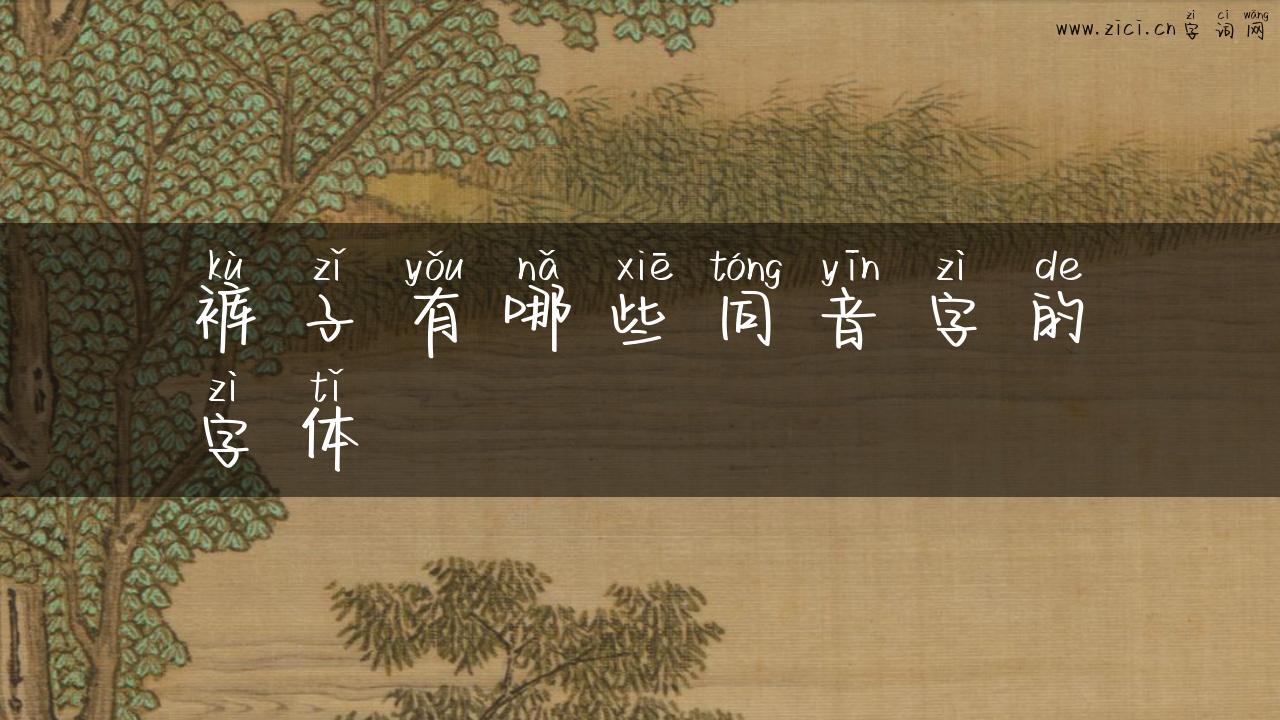 zì cí wǎng
www.zici.cn字词网
kù zǐ yǒu nǎ xiē tóng yīn zì de
裤子有哪些同音字的
zì tǐ
字体